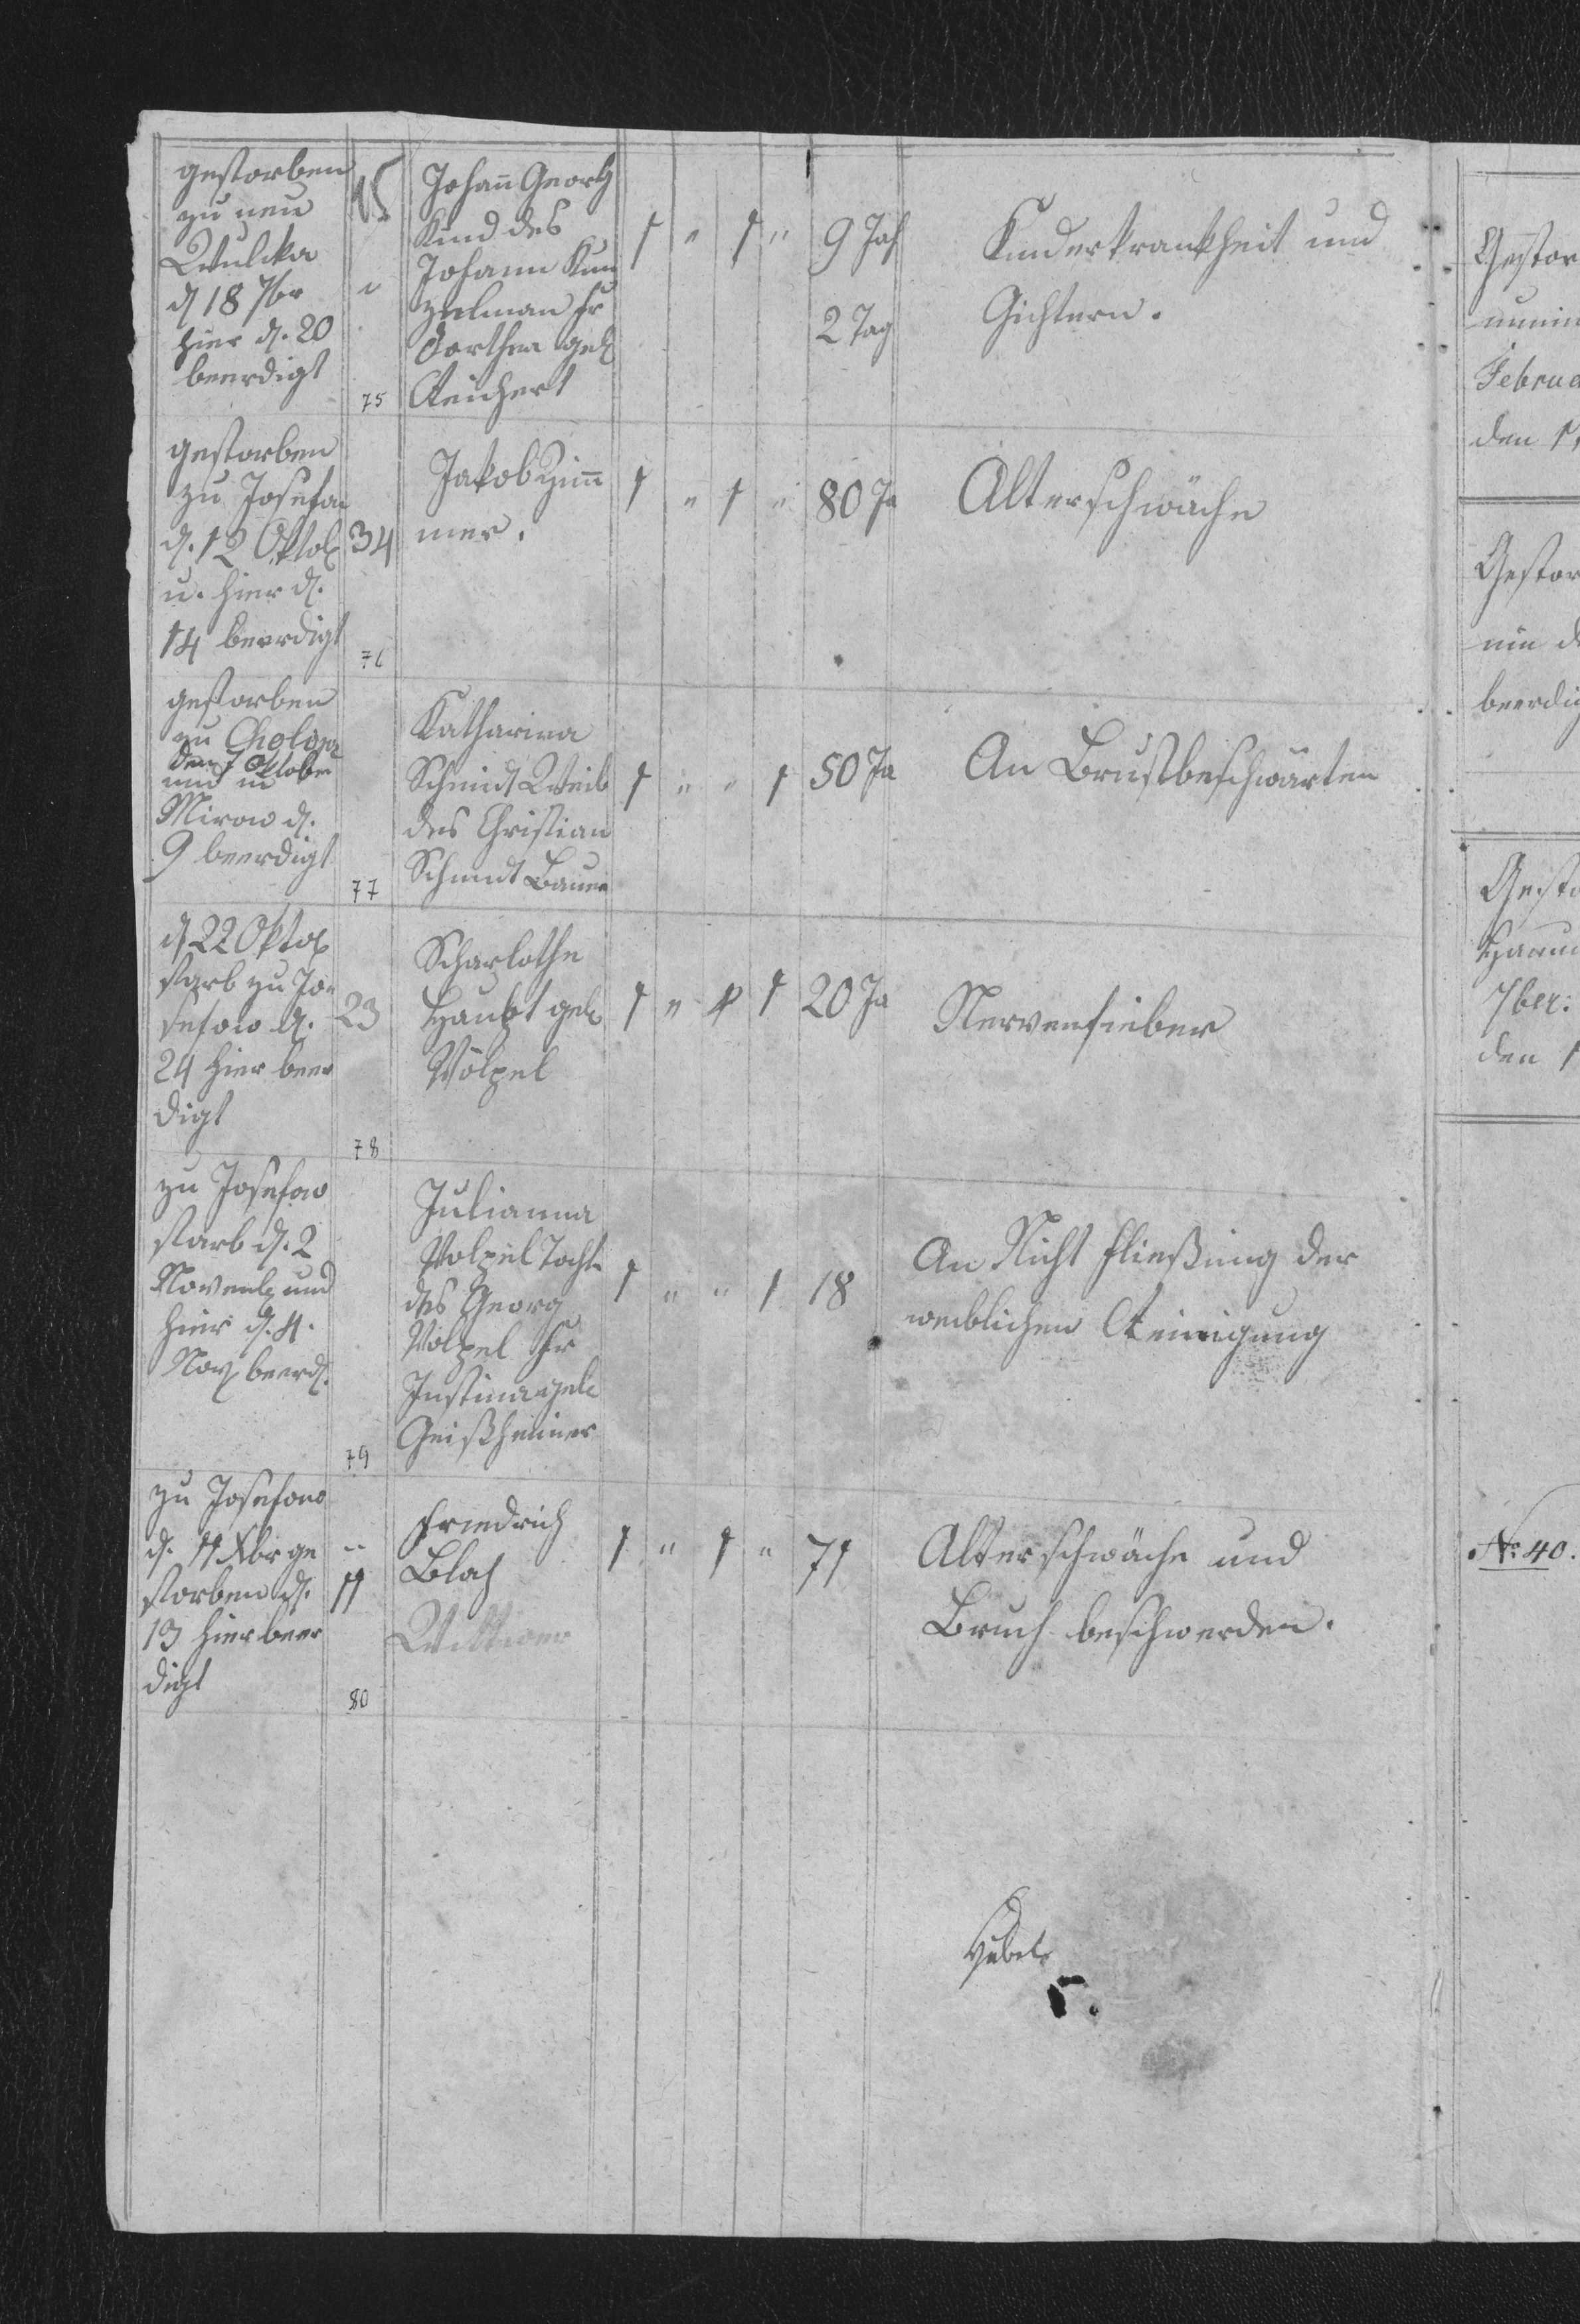 gestorben
zu neu
Wulka
d 18 7br
hier d. 20
beerdigt
15
"
75
Johañ Georg
Kind des
Johann Kun
zelman Fr
Dorthea geb
Reichert
1 " 1 "
9 Jah
2 Tag
Kinderkrankheit und
Gichtern.
gestorben
zu Josefow
d. 12 Oktob
u. hier d.
14 beerdigt
34
76
Jakob Zim̃
mer.
1 " 1 " 80 Ja
Alterschwäche
gestorben
zu Chologa
Den 7 Oktober
und in
Mirow d.
9 beerdigt
77
Katharina
Schmidt Weib
des Christian
Schmidt Bauer
1 " " 1 50 Ja
An Brustbeschwärten
d 22 Oktob
starb zu Jo-
sefow d.
24 hier beer
digt
23
78
Scharlothe
Haupt geb
Völpel
1 " 1 20 Ja
Nervenfieber
zu Josefow
starb d. 2
Novemb und
hier d. 4.
Nov beerd.
79
Julianna
Volpel Tocht.
des Georg
Volpel Fr
Justina geb
Geißheimer
1 " " 1 18
An Nicht fließung der
weiblichen Reinigung
zu Josefow
d. 11 Xbr ge
storben d.
13 hier beer
digt
"
11
80
Friedrich
Blah
Wittwer
1 " 1 " 71
Alterschwäche und
Bruch beschwerden.
Gestor
Februa
den 1
Gestor
beerdig
Gesto
7ber:
den 1
No: 40.